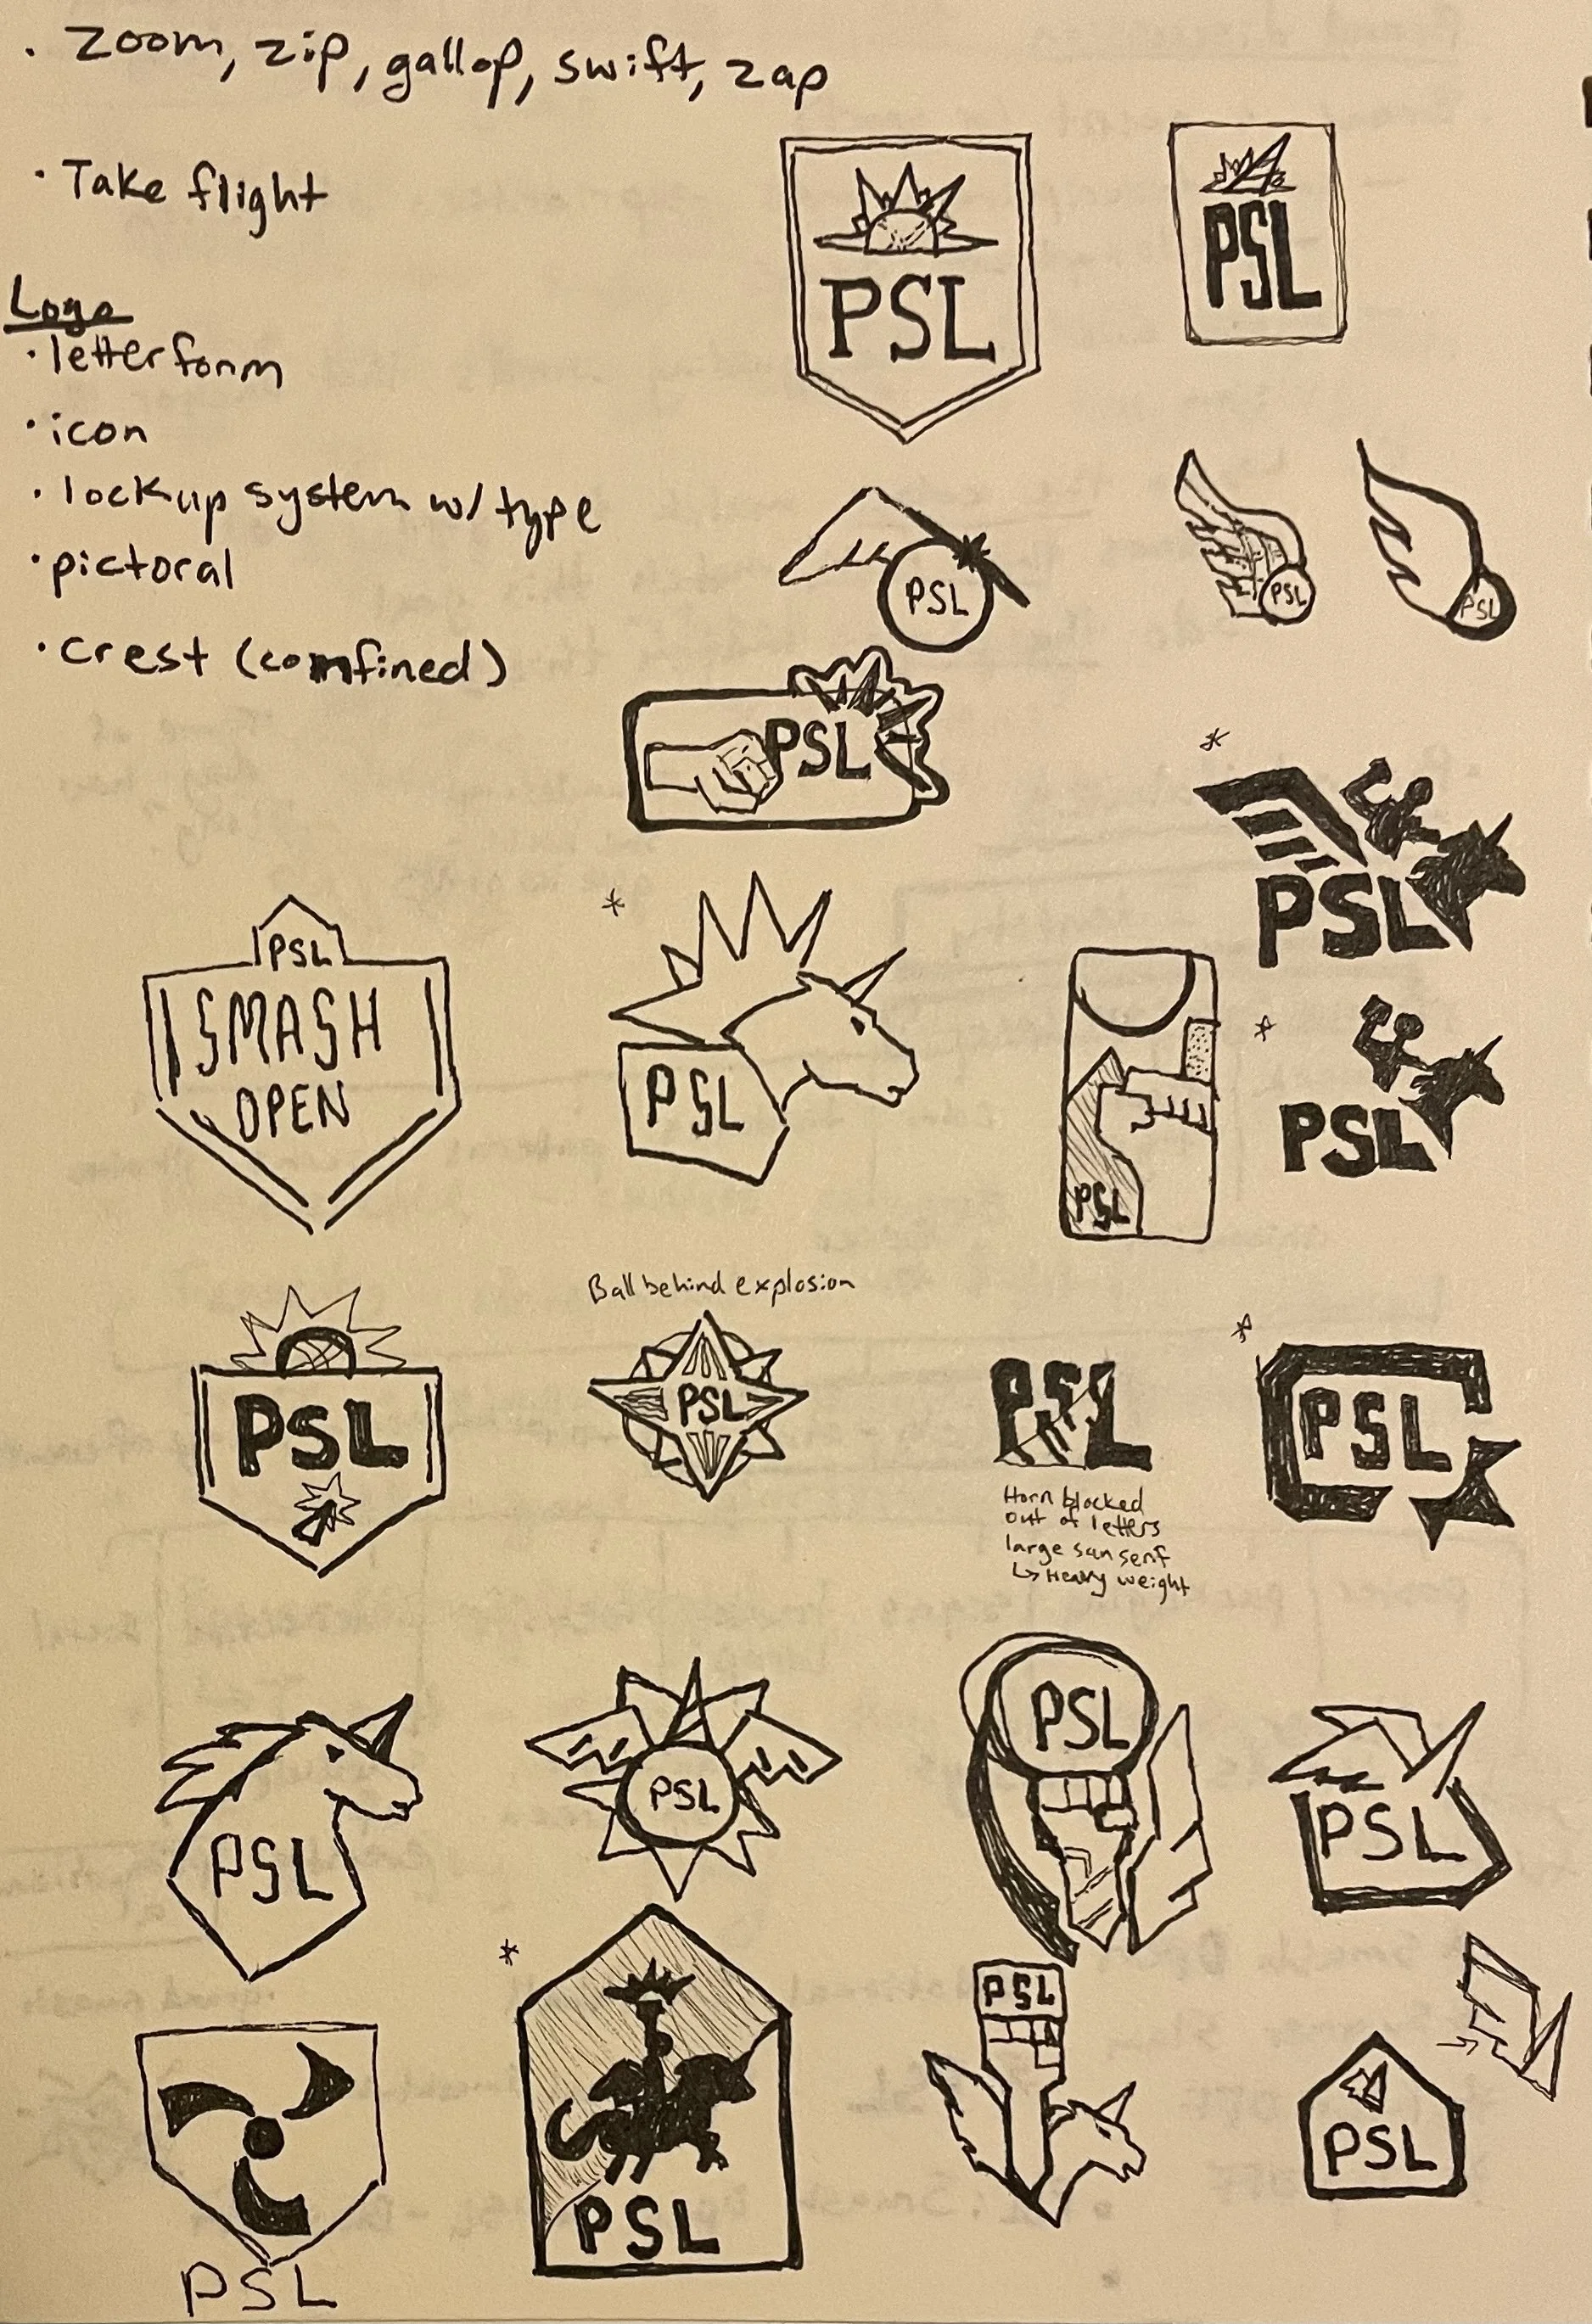 · Zoom, zip, gallop, swift, zap
· Take flight
Logo
· letterform
· icon
· lockup system w/ type
· pictoral
· crest (comfined)
PSL
PSL
PSL
PSL
PSL
PSL
* PSL
PSL
SMASH
OPEN
* PSL
PSL
* PSL
PSL
Ball behind explosion
PSL
PSL
Horn blocked
out of letters
large san serif
↳ Heavy weight
* PSL
PSL
PSL
PSL
PSL
* PSL
PSL
PSL
PSL